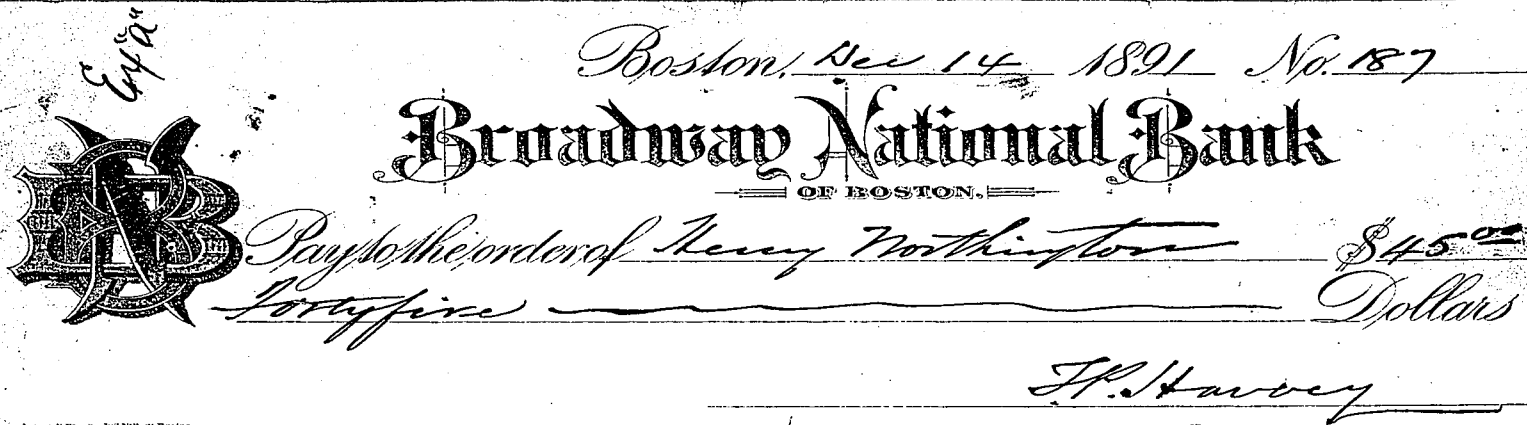 Ex "a"
Boston, Dec 14 1891 No. 187
Broadway National Bank
OF BOSTON.
Pay to the order of Henry Worthington $45.00
Forty five Dollars
F.P. Harvey